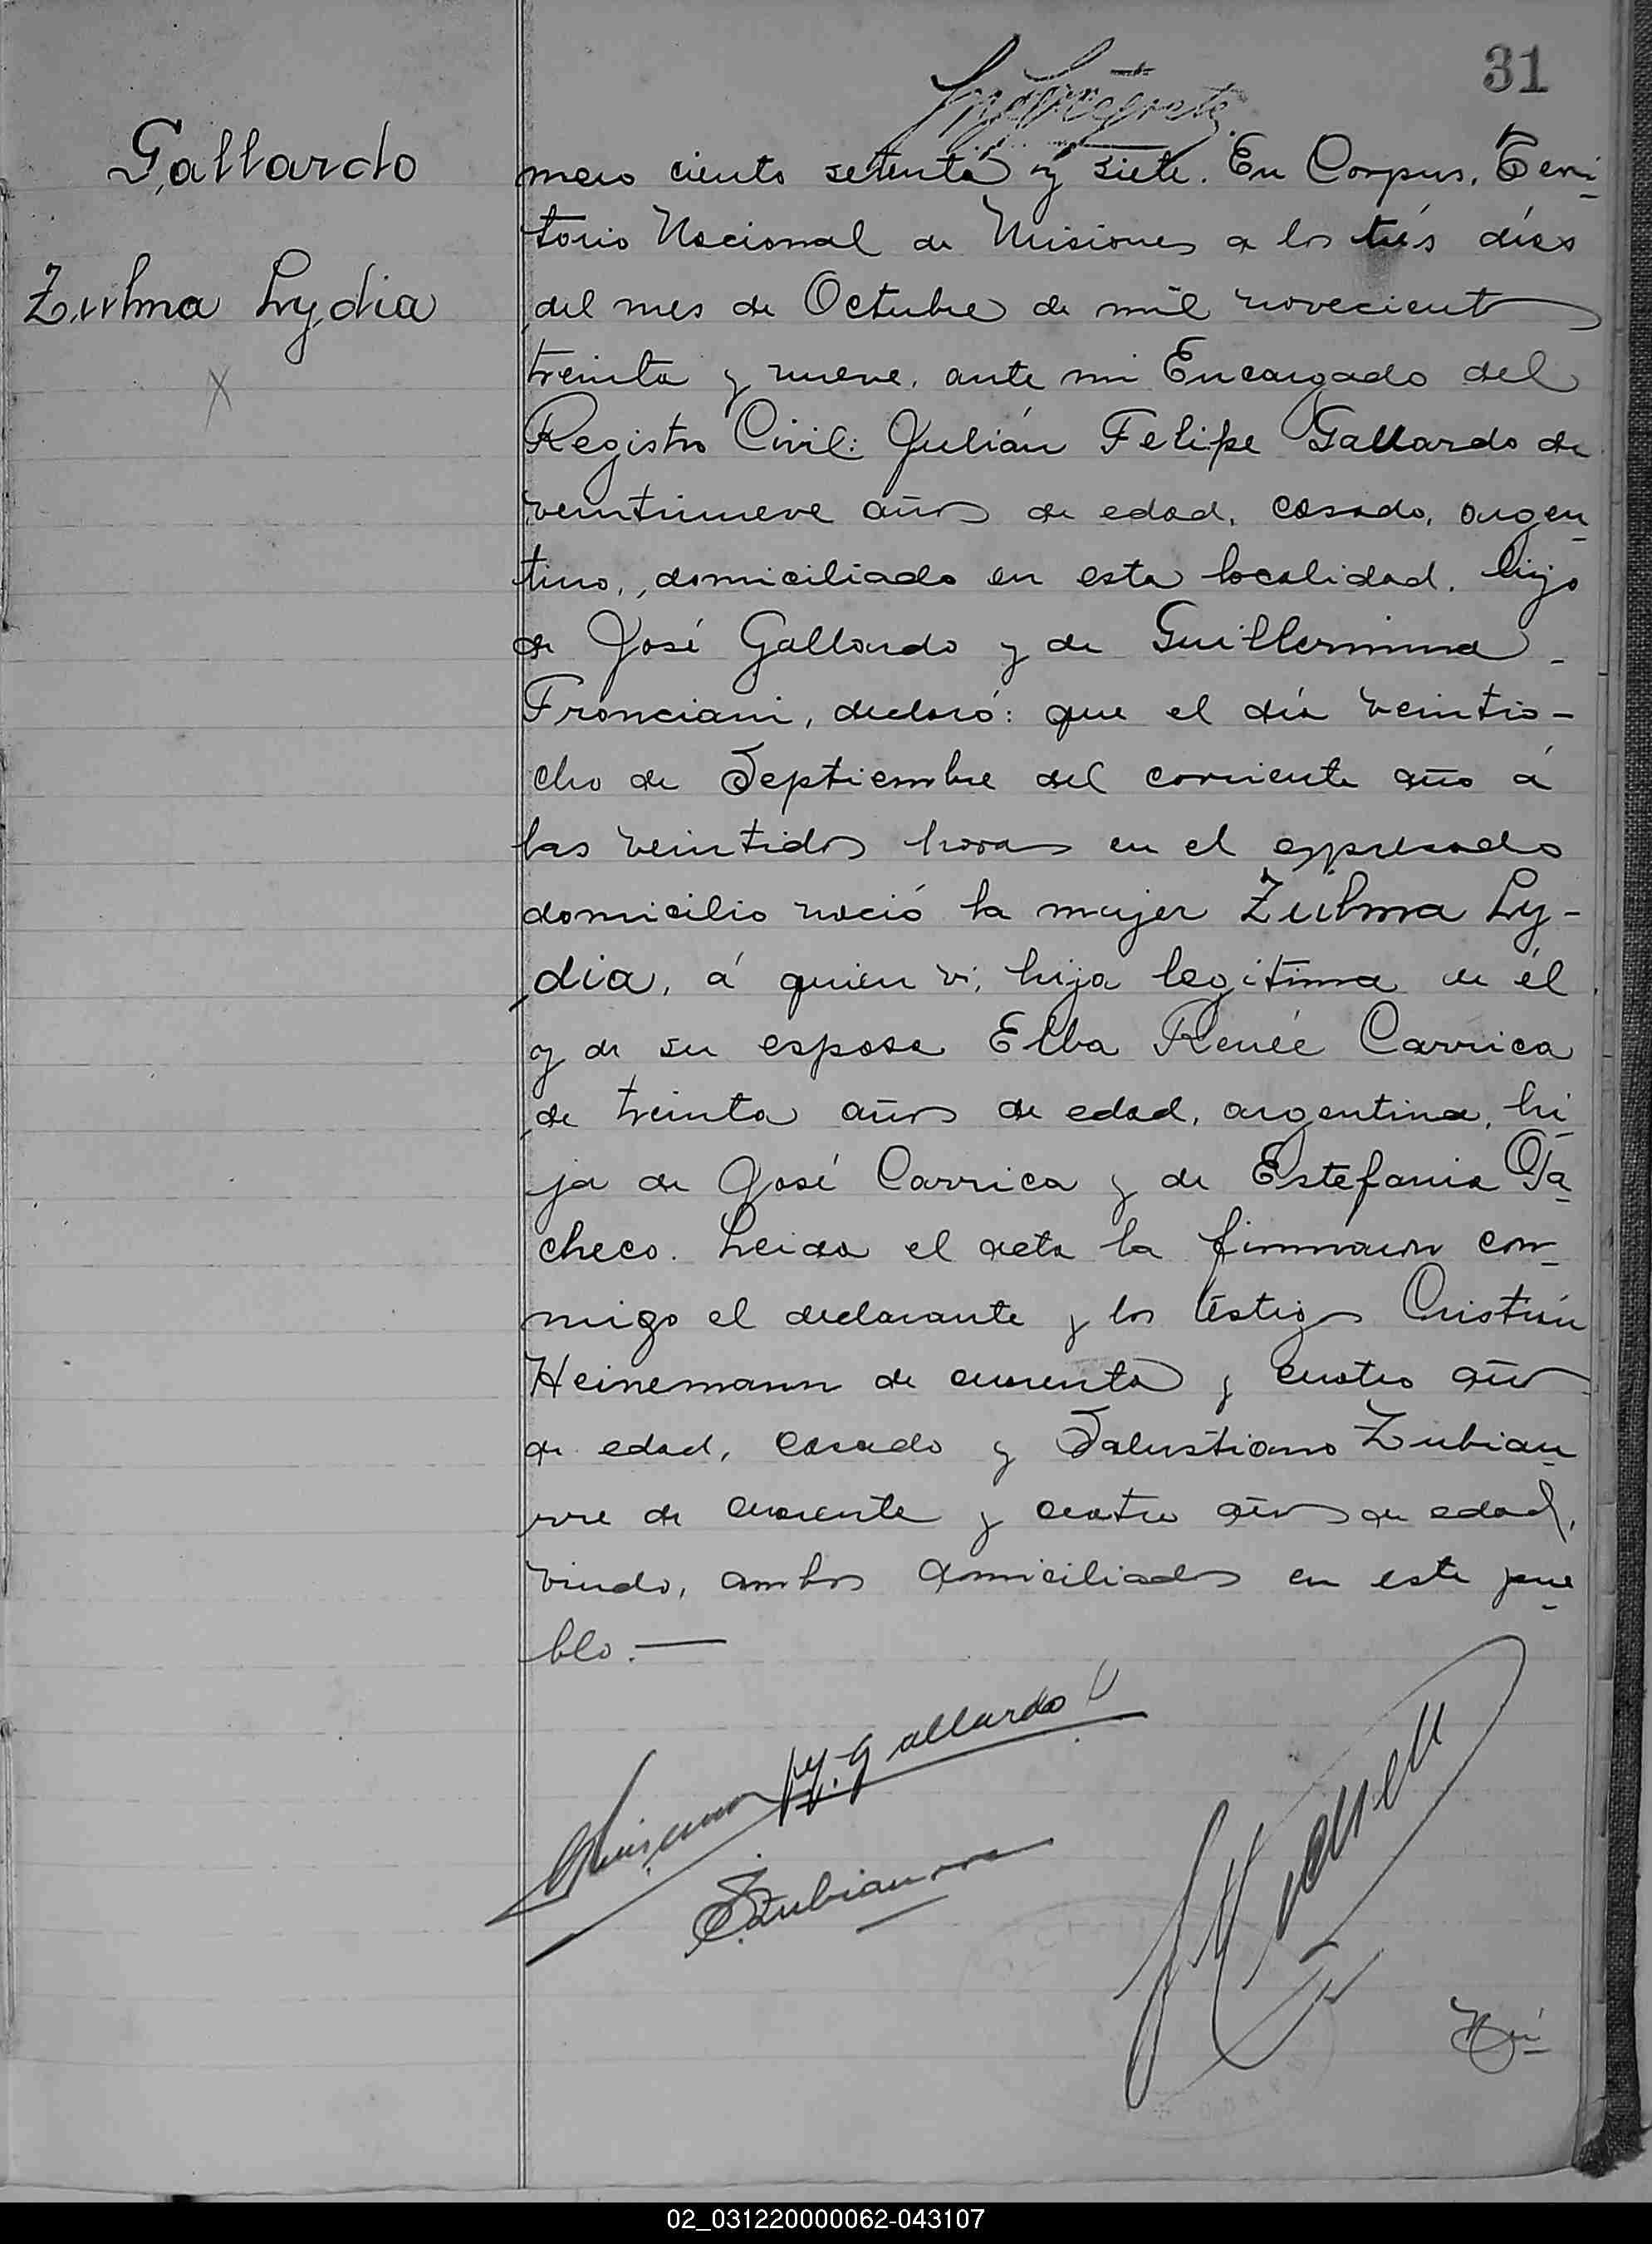 31
Gallardo
Zulma Lydia
X
mero ciento setenta y siete. En Corpus, Terri-
torio Nacional de Misiones a los trés días
del mes de Octubre de mil novecientos
treinta y nueve, ante mi Encargado del
Registro Civil: Julián Felipe Gallardo de
veintinueve años de edad, casado, argen-
tino, domiciliado en esta localidad, hijo
de José Gallardo y de Guillermina -
Fronciani, declaró: que el día veintio-
cho de Septiembre del corriente año á
las veintidos horas en el expresado
domicilio nació la mujer Zulma Ly-
dia, á quien vi, hija legitima de él
y de su esposa Elba Renée Carrica
de treinta años de edad, argentina, hi-
ja de José Carrica y de Estefania Pa-
checo. Leida el acta la firmaron con-
migo el declarante y los testigos Cristián
Heinemann de cuarenta y cuatro años
de edad, casado y Salustiano Zubiau-
rre de cuarenta y cuatro años de edad,
viudo, ambos domiciliados en este pue-
blo. —
Gallardo
Zubiaurre
Nú-
02_031220000062-043107